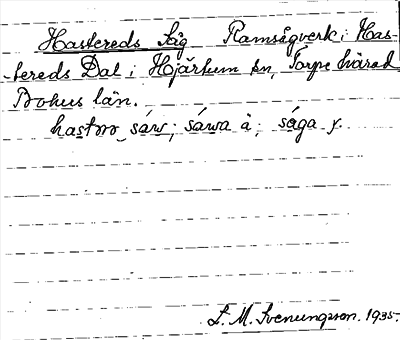 Hastereds Såg Ramsågverk i Has-
tereds Dal i Hjärtum sn, Torpe härad
Bohus län.
såga y.
L. M. Svenungsson. 1935.